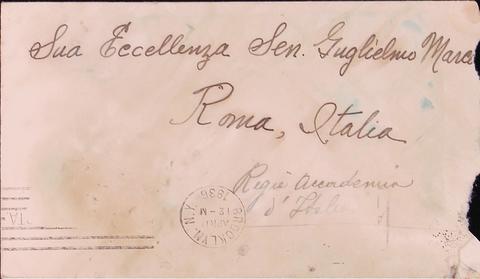 Sua Eccellenza Sen. Guglielmo Marco
Roma, Italia
Regie Accademia
d'Italia
BROOKLYN, N.Y.
APR
12-M
1936